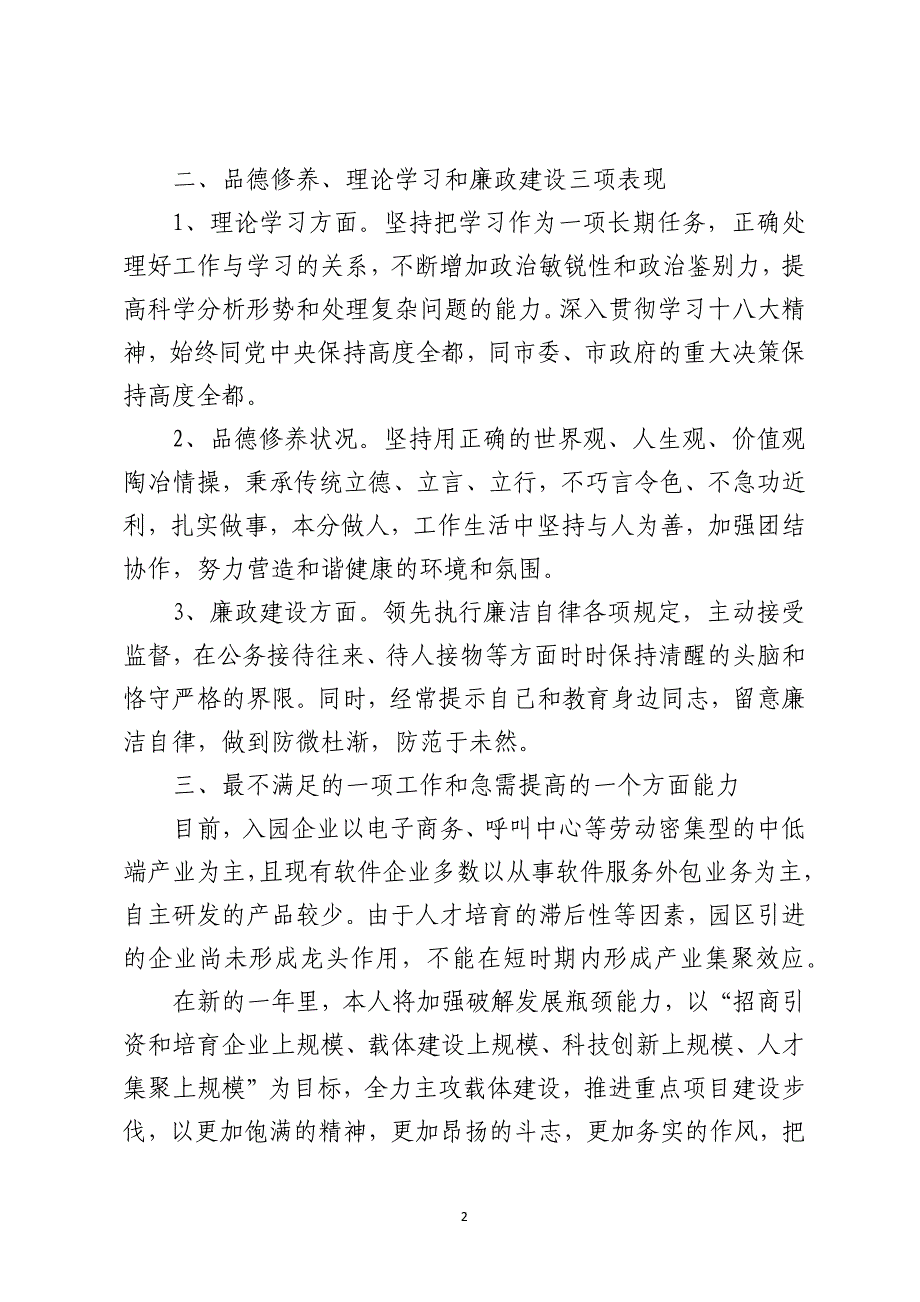 二、品德修养、理论学习和廉政建设三项表现
1、理论学习方面。坚持把学习作为一项长期任务，正确处
理好工作与学习的关系，不断增加政治敏锐性和政治鉴别力，提
高科学分析形势和处理复杂问题的能力。深入贯彻学习十八大精
神，始终同党中央保持高度全都，同市委、市政府的重大决策保
持高度全都。
2、品德修养状况。坚持用正确的世界观、人生观、价值观
陶冶情操，秉承传统立德、立言、立行，不巧言令色、不急功近
利，扎实做事，本分做人，工作生活中坚持与人为善，加强团结
协作，努力营造和谐健康的环境和氛围。
3、廉政建设方面。领先执行廉洁自律各项规定，主动接受
监督，在公务接待往来、待人接物等方面时时保持清醒的头脑和
恪守严格的界限。同时，经常提示自己和教育身边同志，留意廉
洁自律，做到防微杜渐，防范于未然。
三、最不满足的一项工作和急需提高的一个方面能力
目前，入园企业以电子商务、呼叫中心等劳动密集型的中低
端产业为主，且现有软件企业多数以从事软件服务外包业务为主，
自主研发的产品较少。由于人才培育的滞后性等因素，园区引进
的企业尚未形成龙头作用，不能在短时期内形成产业集聚效应。
在新的一年里，本人将加强破解发展瓶颈能力，以“招商引
资和培育企业上规模、载体建设上规模、科技创新上规模、人才
集聚上规模”为目标，全力主攻载体建设，推进重点项目建设步
伐，以更加饱满的精神，更加昂扬的斗志，更加务实的作风，把
2